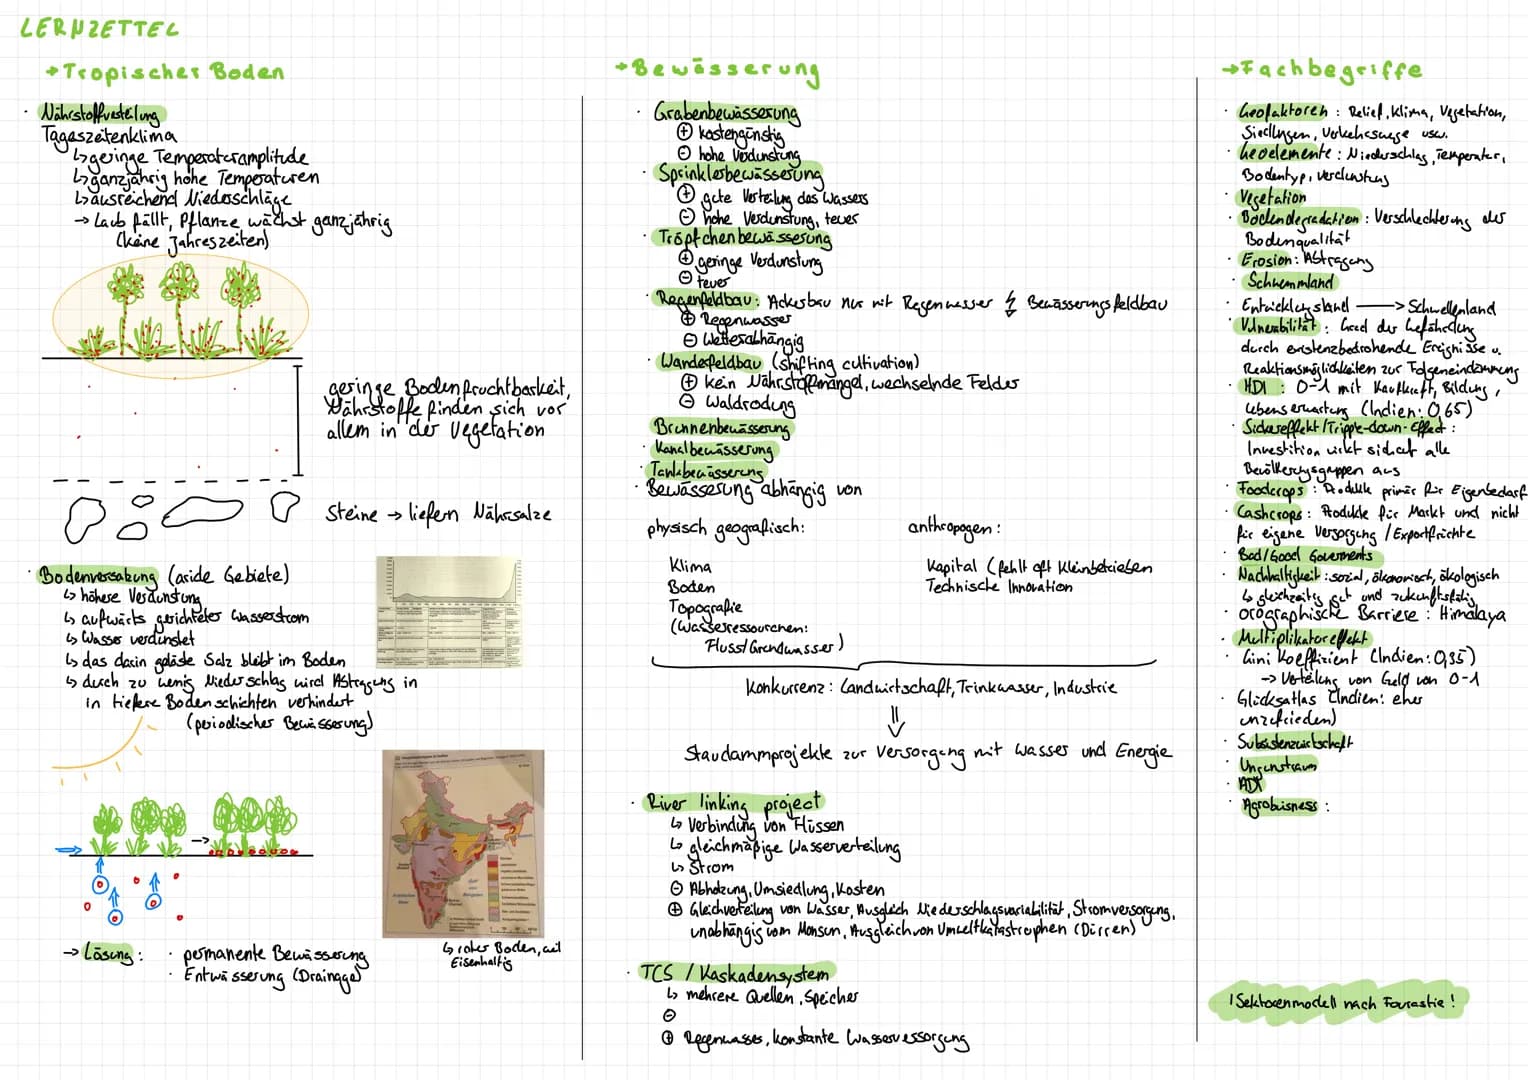 LERNZETTEL
→ Tropischer Boden
· Nährstoffverteilung
Tageszeitenklima
↳ geringe Temperaturamplitude
↳ ganzjährig hohe Temperaturen
↳ ausreichend Niederschläge
→ Laub fällt, Pflanze wächst ganzjährig
(keine Jahreszeiten)
geringe Bodenfruchtbarkeit,
Nährstoffe finden sich vor
allem in der Vegetation
Steine → liefern Nährsalze
· Bodenversalzung (aride Gebiete)
↳ höhere Verdunstung
↳ aufwärts gerichteter Wasserstrom
↳ Wasser verdunstet
↳ das darin gelöste Salz bleibt im Boden
↳ durch zu wenig Niederschlag wird Abtragung in
in tiefere Bodenschichten verhindert
(periodischer Bewässerung)
→ Lösung: · permanente Bewässerung
· Entwässerung (Drainage)
↳ roter Boden, weil
Eisenhaltig
→ Bewässerung
· Grabenbewässerung
⊕ kostengünstig
⊖ hohe Verdunstung
· Sprinklerbewässerung
⊕ gute Verteilung des Wassers
⊖ hohe Verdunstung, teuer
· Tröpfchenbewässerung
⊕ geringe Verdunstung
⊖ teuer
· Regenfeldbau: Ackerbau nur mit Regenwasser ↯ Bewässerungsfeldbau
⊕ Regenwasser
⊖ Wetterabhängig
· Wanderfeldbau (shifting cultivation)
⊕ kein Nährstoffmangel, wechselnde Felder
⊖ Waldrodung
Brunnenbewässerung
· Kanalbewässerung
· Tankbewässerung
· Bewässerung abhängig von
physisch geografisch: anthropogen:
Klima
Boden
Topografie
(Wasserressourcen:
Fluss/Grundwasser)
Kapital (fehlt oft Kleinbetrieben
Technische Innovation
Konkurrenz: Landwirtschaft, Trinkwasser, Industrie
⇓
Staudammprojekte zur Versorgung mit Wasser und Energie
· River linking project
↳ Verbindung von Flüssen
↳ gleichmäßige Wasserverteilung
↳ Strom
⊖ Abholzung, Umsiedlung, Kosten
⊕ Gleichverteilung von Wasser, Ausgleich Niederschlagsvariabilität, Stromversorgung,
unabhängig vom Monsun, Ausgleich von Umweltkatastrophen (Dürren)
· TCS / Kaskadensystem
↳ mehrere Quellen, Speicher
⊖
⊕ Regenwasser, konstante Wasserversorgung
→ Fachbegriffe
· Geofaktoren: Relief, Klima, Vegetation,
Siedlungen, Verkehrswege usw.
· Geoelemente: Niederschlag, Temperatur,
Bodentyp, Verdunstung
· Vegetation
· Bodendegradation: Verschlechterung der
Bodenqualität
· Erosion: Abtragung
· Schwemmland
· Entwicklungsland → Schwellenland
· Vulnerabilität: Grad der Gefährdung
durch existenzbedrohende Ereignisse u.
Reaktionsmöglichkeiten zur Folgeneindämmung
· HDI: 0-1 mit Kaufkraft, Bildung,
Lebenserwartung (Indien: 0,65)
· Sickereffekt/Tripple-down-Effect:
Investition wirkt sich auf alle
Bevölkerungsgruppen aus
· Foodcrops: Produkte primär für Eigenbedarf
· Cashcrops: Produkte für Markt und nicht
für eigene Versorgung / Exportfrüchte
· Bad/Good Goverments
· Nachhaltigkeit: sozial, ökonomisch, ökologisch
↳ gleichzeitig gut und zukunftsfähig
· orographische Barriere: Himalaya
· Multiplikatoreffekt
· Gini Koeffizient (Indien: 0,35)
→ Verteilung von Geld von 0-1
· Glücksatlas (Indien: eher
unzufrieden)
· Subsistenzwirtschaft
· Ungunstraum
· ADI
· Agrobuisness:
! Sektorenmodell nach Fourastie !